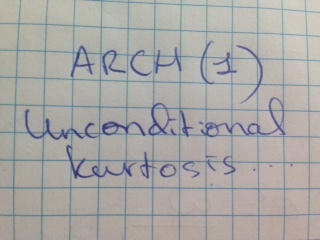 ARCH (1)
Unconditional
kurtosis....